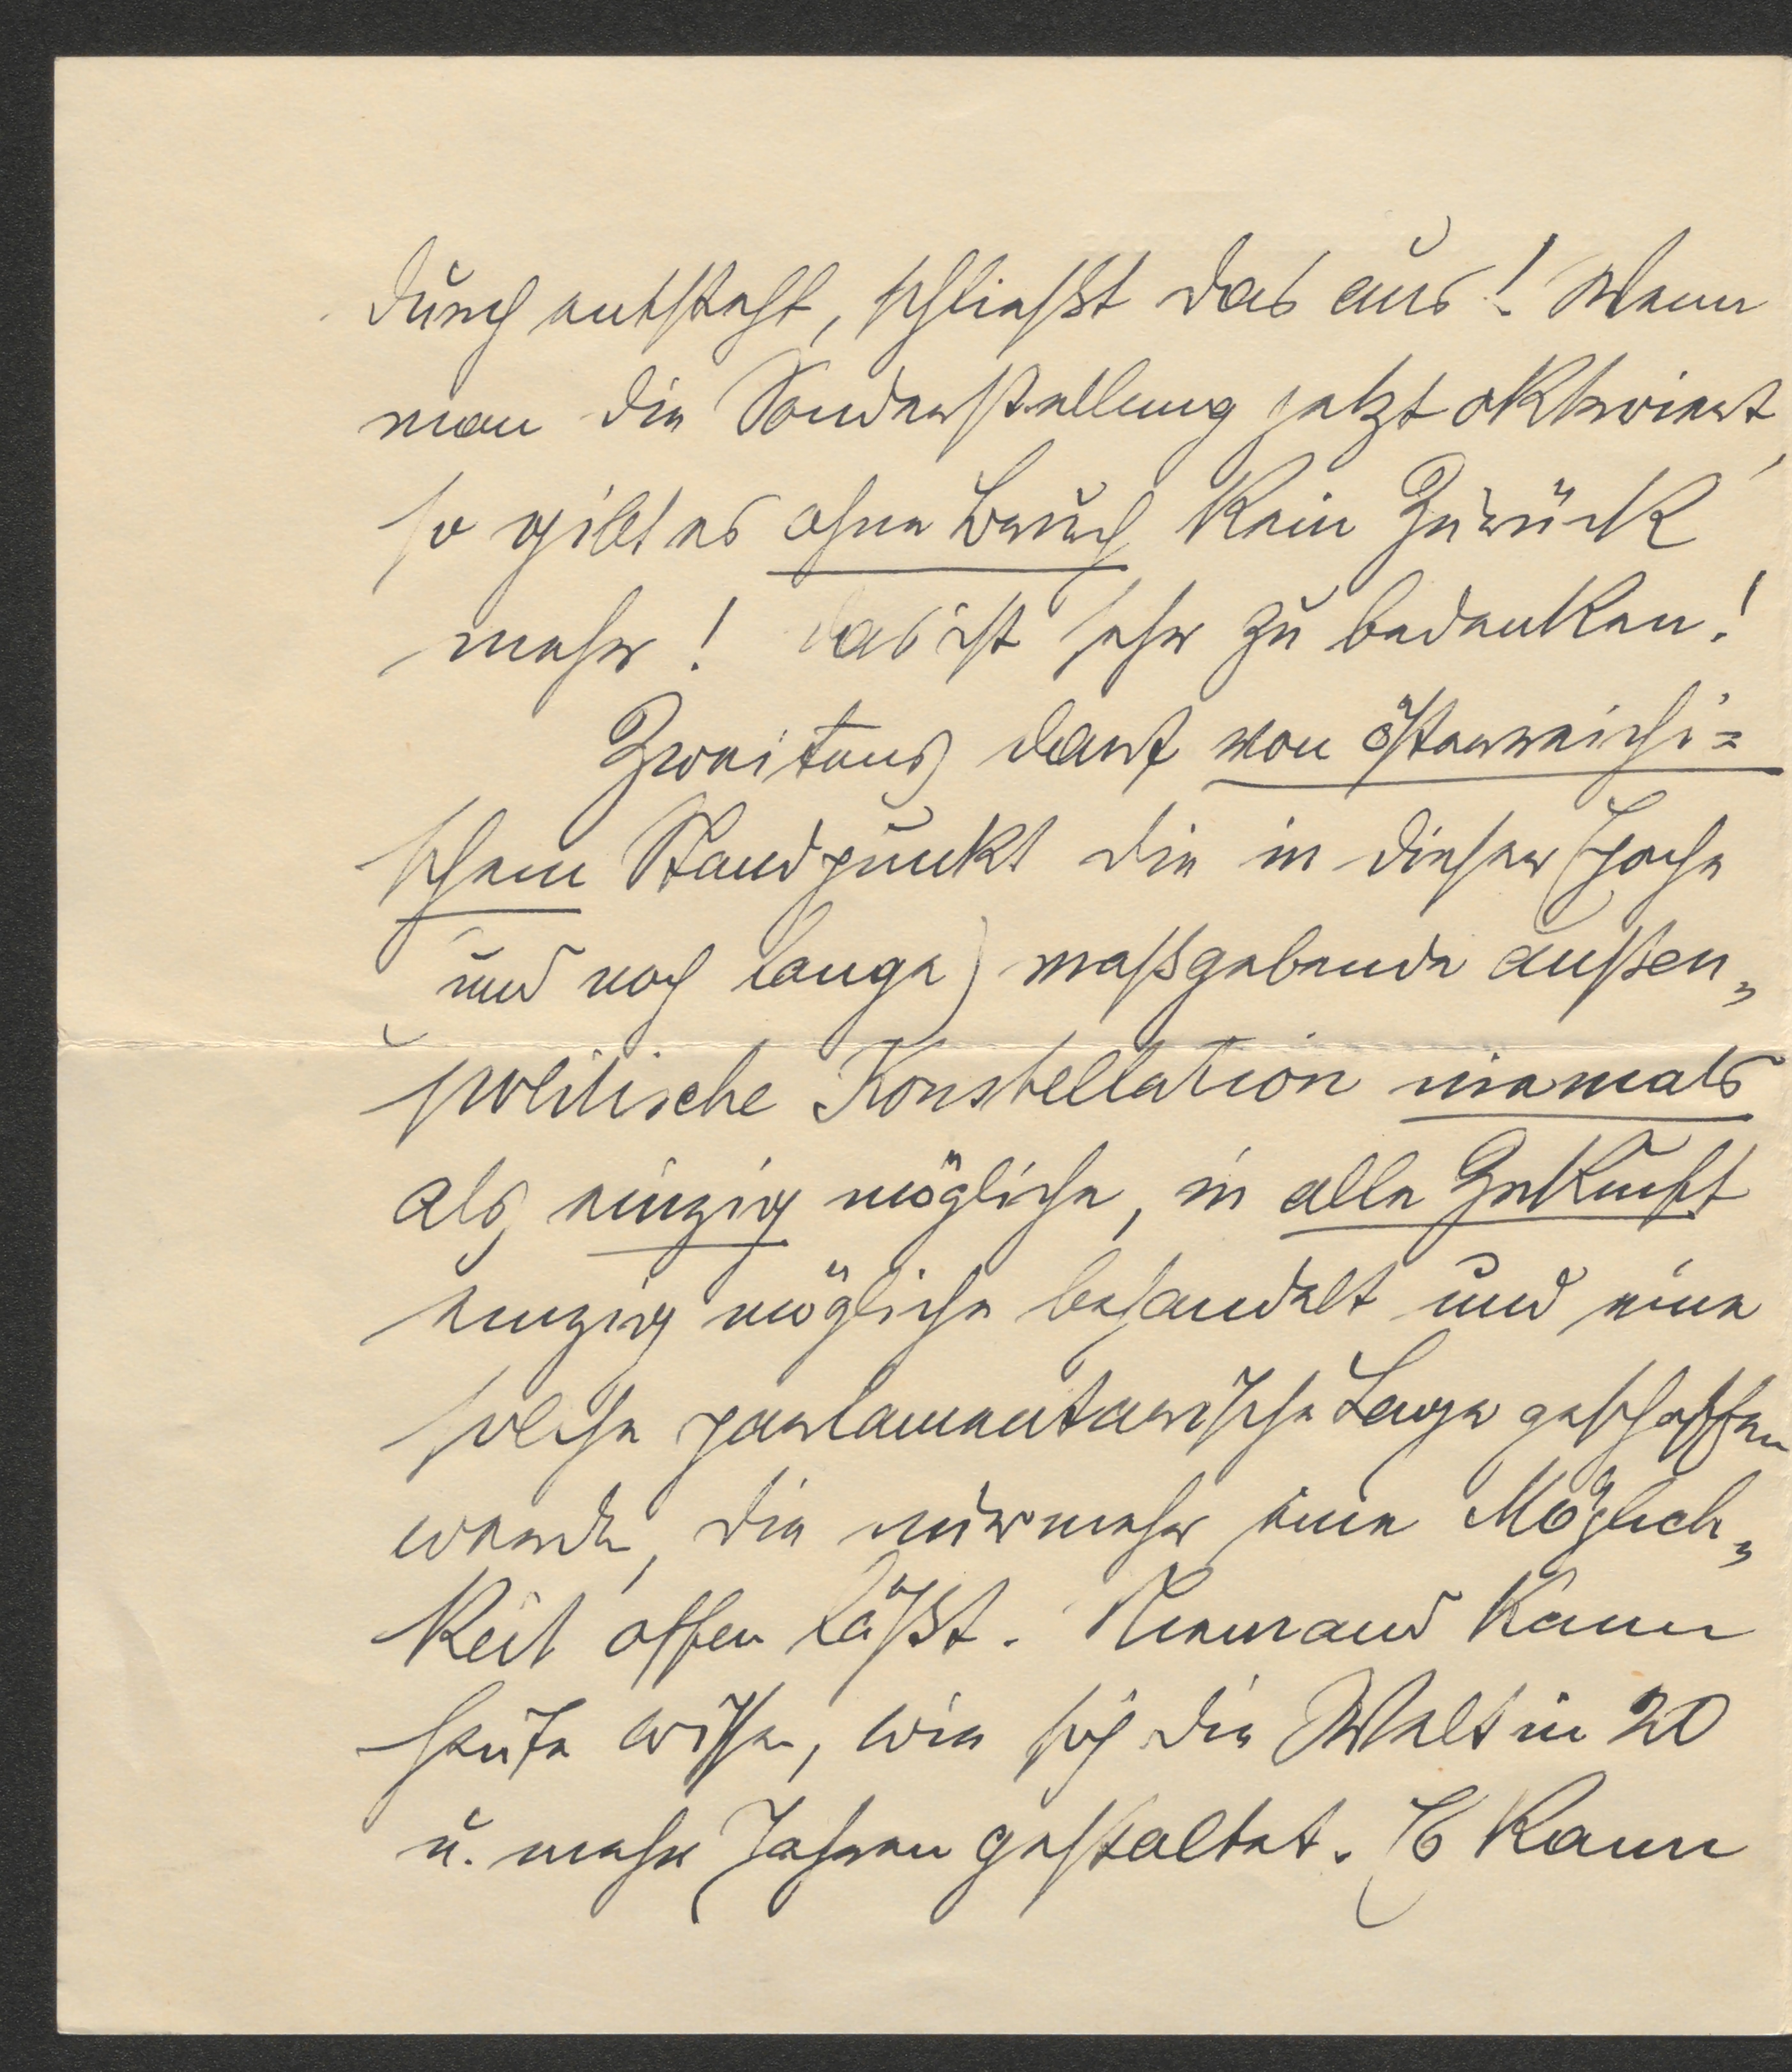 durch entsteht, schließt das aus! Wenn
man die Sonderstellung jetzt oktroiert,
so gibt es ohne Bruch kein Zurück
mehr! das ist sehr zu bedenken!
Zweitens darf von österreichi=
schem Standpunkt die in dieser Epoche
(und noch lange) maßgebende außen„
politische Konstellation niemals
als einzig mögliche, in alle Zukunft
einzig mögliche behandelt und eine
solche parlamentarische Lage geschaffen
werden, die nurmehr eine Möglich„
keit offen läßt. Niemand kann
heute wissen, wie sich die Welt in 20
u. mehr Jahren gestaltet. Es kann